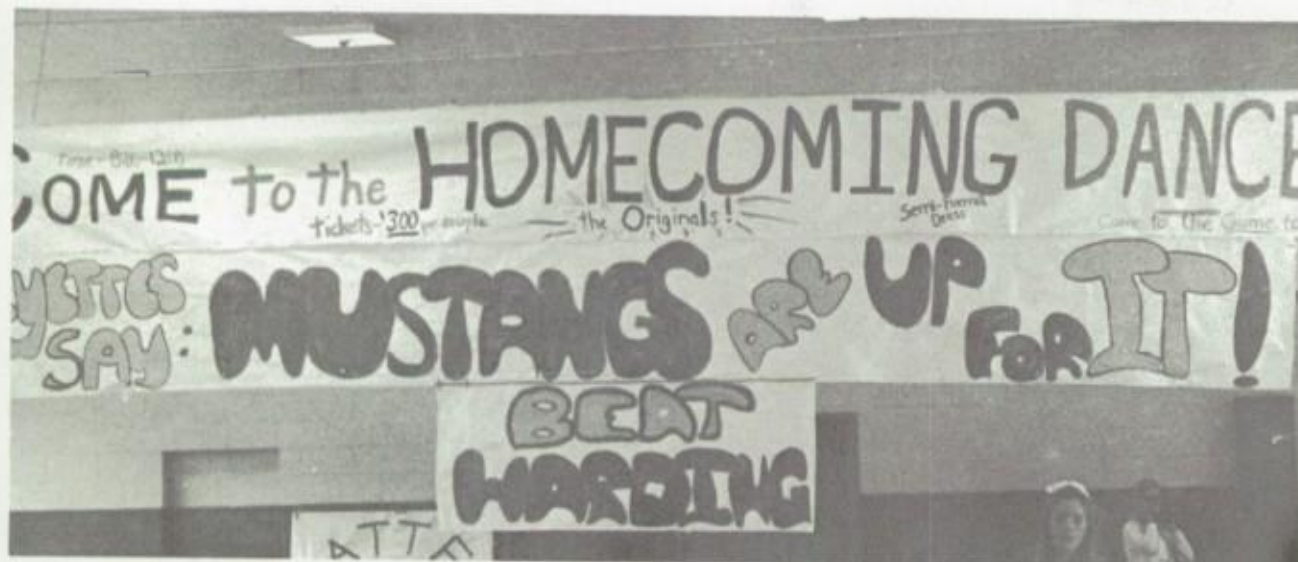 COME to the HOMECOMING DANCE
tickets-$3.00 per couple the Originals! Semi-Formal Dress Come to the Game to
SAY: MUSTANGS ARE UP FOR IT!
BEAT
HARDING